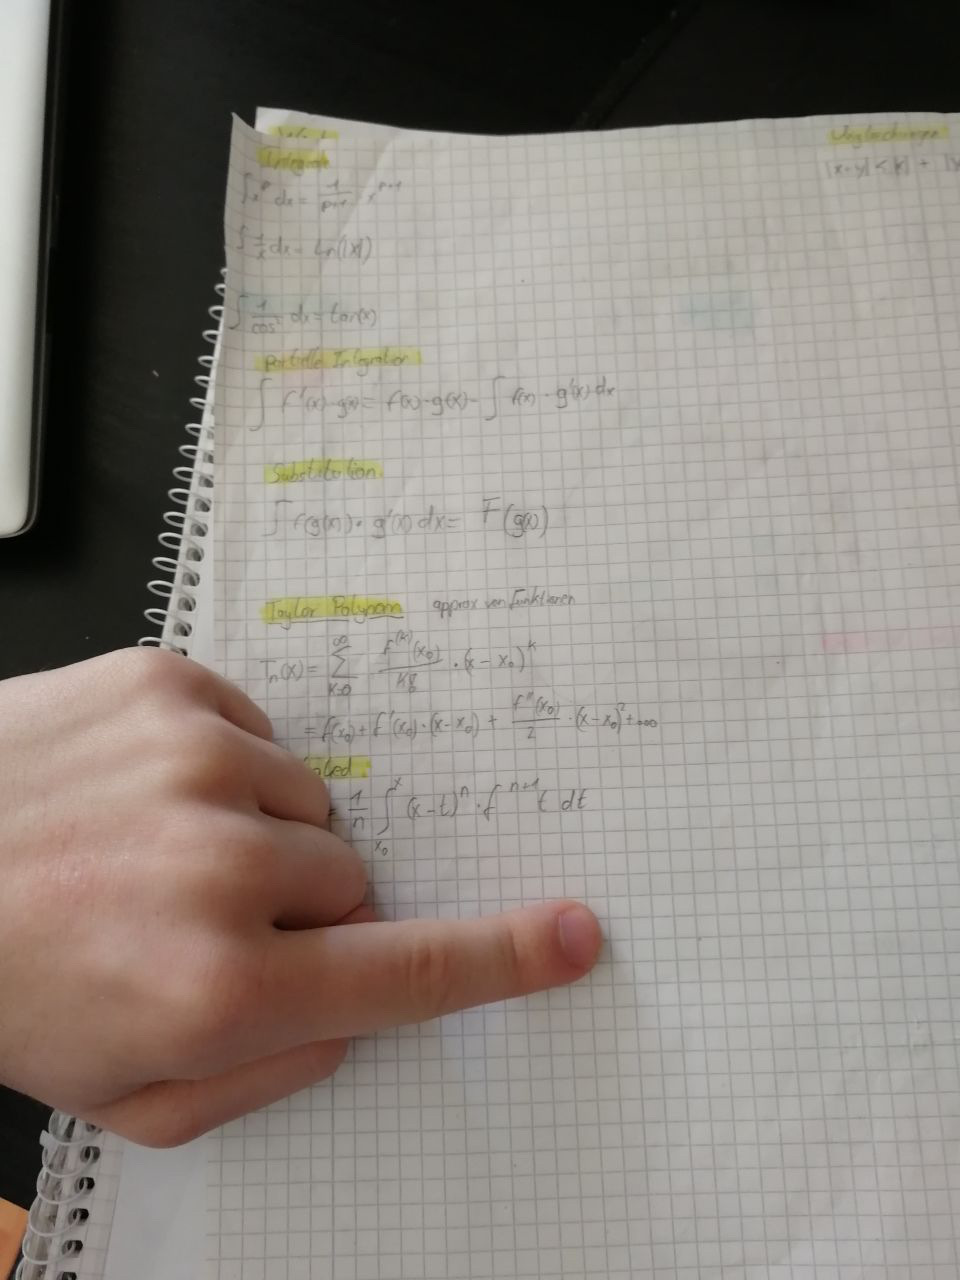 Integrale
∫x^p dx = 1/(p+1) x^(p+1)
∫ 1/x dx = Ln(|x|)
∫ 1/cos² dx = tan(x)
Partielle Integration
∫ f'(x)·g(x) = f(x)·g(x) - ∫ f(x)·g'(x) dx
Substitution
∫ f(g(x))·g'(x) dx = F(g(x))
Taylor Polynom approx von Funktionen
Tn(x) = ∑_(k=0)^∞ f^(k)(x₀)/k! ·(x-x₀)^k
= f(x₀) + f'(x₀)·(x-x₀) + f''(x₀)/2 ·(x-x₀)² + ...
= 1/n ∫_(x₀)^x (x-t)^n · f^(n+1) t dt
Ungleichungen